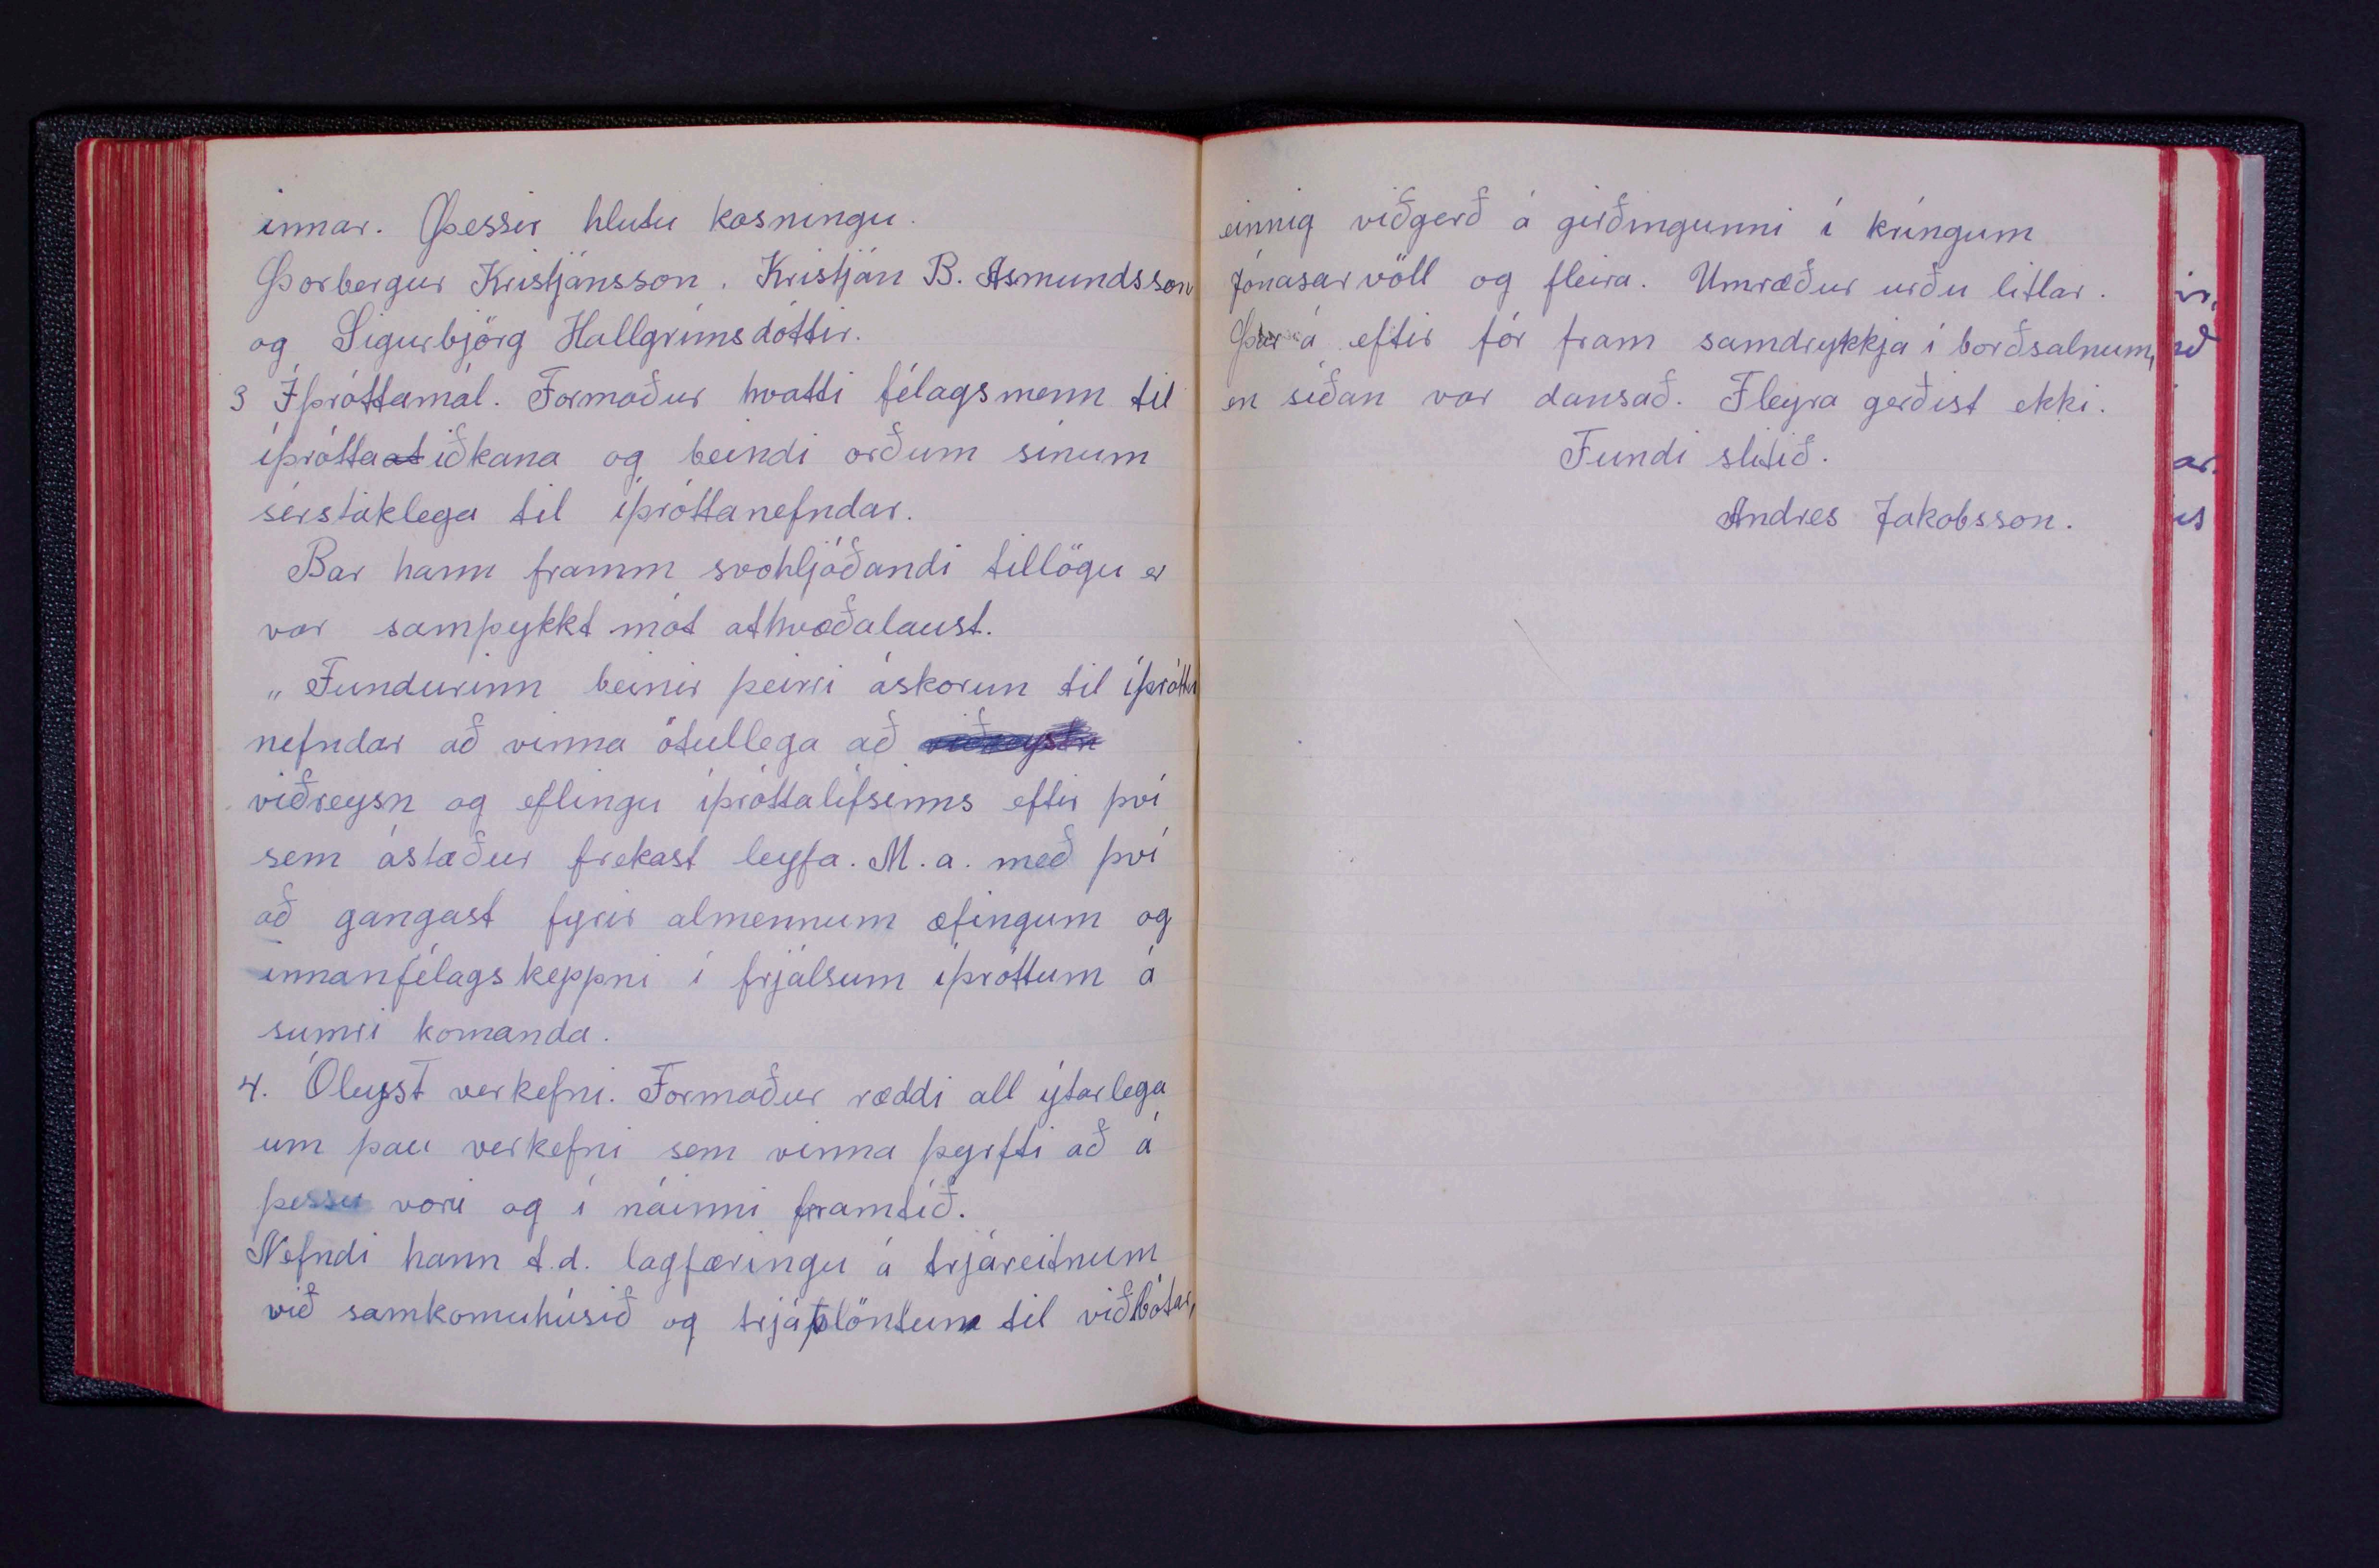 innar. Þessir hlutu kosningu.
Þorbergur Kristjánsson. Kristján B. Asmundsson
og Sigurbjörg Hallgrímsdóttir.
3 Íþróttamál. Formaður hvatti félagsmenn til
íþróttaat iðkana og beindi orðum sínum
sérstaklega til íþróttanefndar.
Bar hann framm svohljóðandi tillögu er
var samþykkt mót athvæðalaust.
„Fundurinn beinir þeirri áskorun til íþrótta
nefndar að vinna ötullega að
viðreysn og eflingu íþróttalífsinns eftir því
sem ástæður frekast leyfa. M.a. með því
að gangast fyrir almennum æfingum og
innanfélags keppni í frjálsum íþróttum á
sumri komanda.
4. Óleyst verkefni. Formaður ræddi all ýtarlega
um þau verkefni sem vinna þyrfti að á
þessu vori og í náinni framtíð.
Nefndi hann t.d. lagfæringu á trjáreitnum
við samkomuhúsið og trjáplöntum til viðbótar,
einnig viðgerð á girðingunni í kríngum
Jónasarvöll og fleira. Umræður urðu litlar.
Þar á eftir fór fram samdrykkja í borðsalnum,
en síðan var dansað. Fleyra gerðist ekki.
Fundi slitið.
Andres Jakobsson.